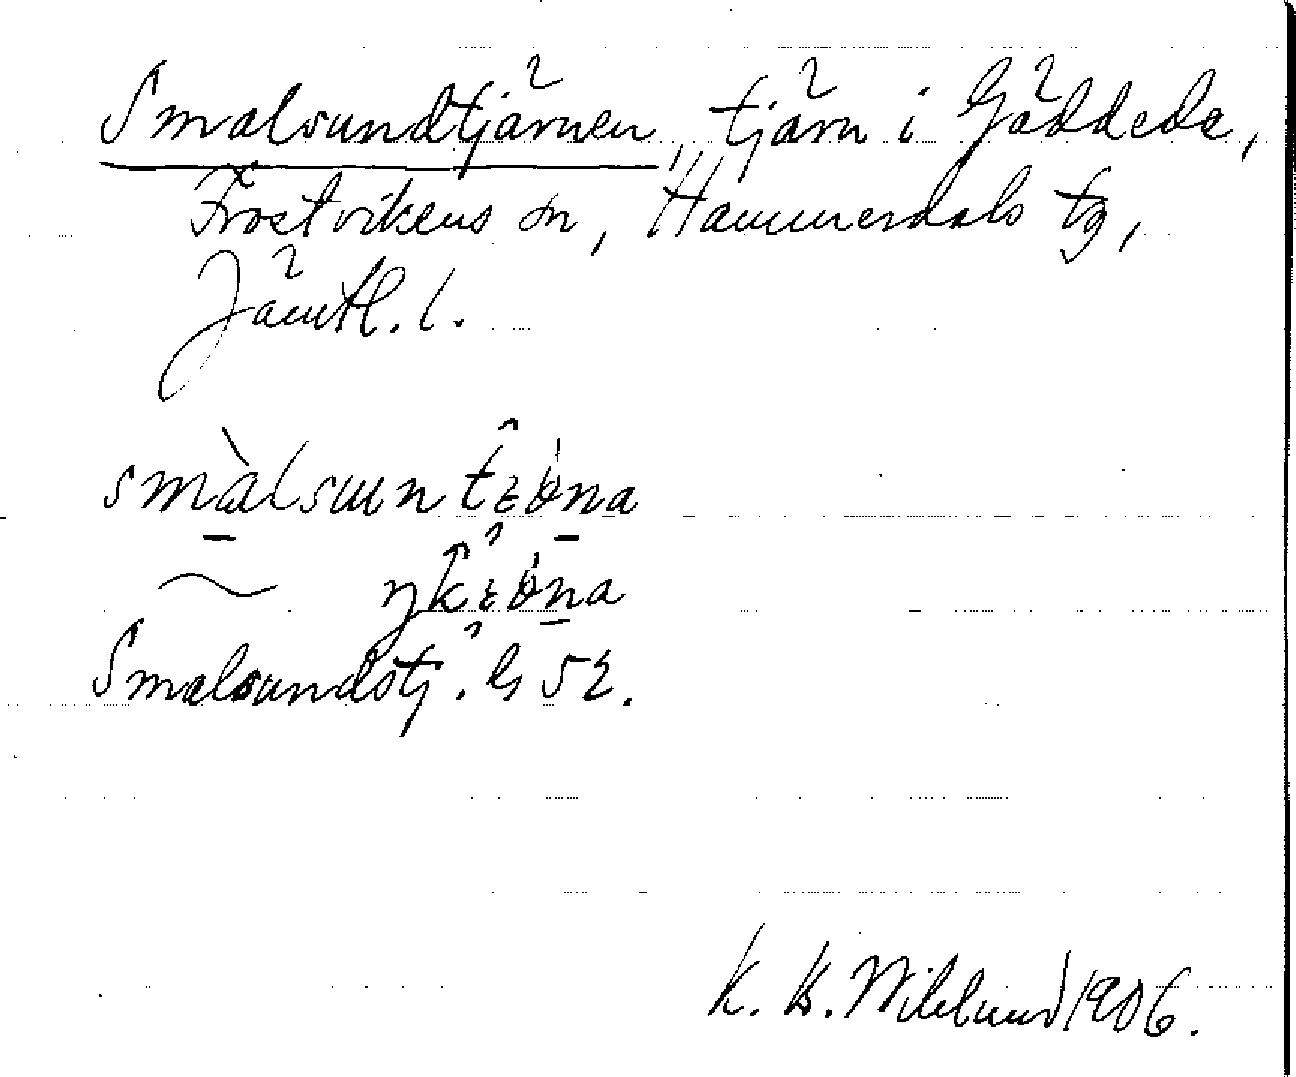 Smalsundtjärnen, tjärn i Gäddede,
Frostvikens sn, Hammerdals tg,
Jämtl. l.
smàlsun
Smalsundstj. G 52.
K. B. Wiklund 1906.